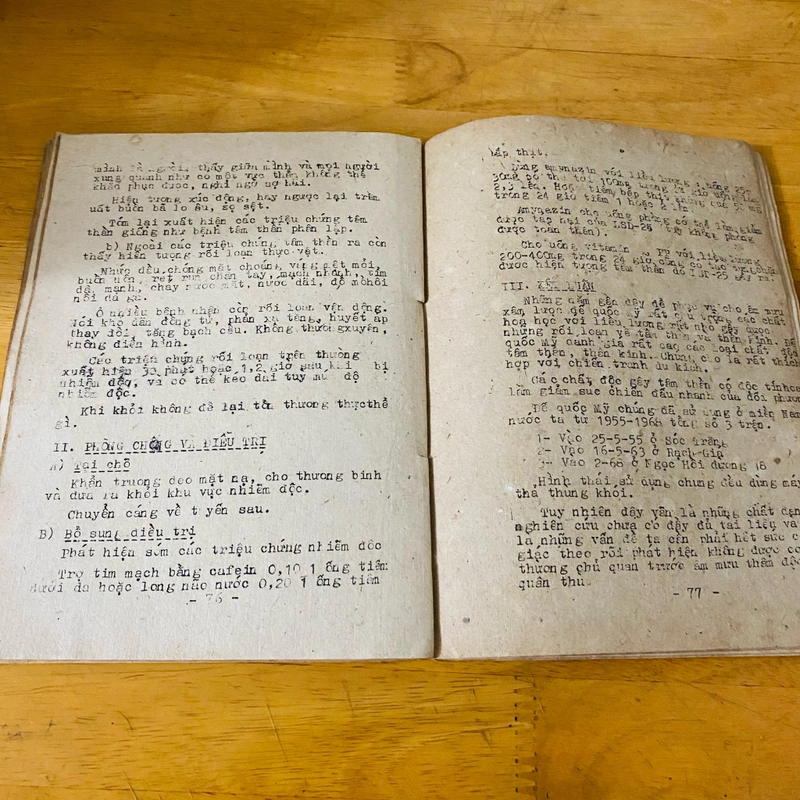 mình là người, thấy giữa mình và mọi người
xung quanh như có một vực thẳm không thể
khắc phục được, nghi ngờ sợ hãi.
Hiện tượng xúc động, hay ngược lại trầm
uất buồn bã lo âu, sợ sệt.
Tóm lại xuất hiện các triệu chứng tâm
thần giống như bệnh tâm thần phân lập.
b) Ngoài các triệu chứng tâm thần ra còn
thấy hiện tượng rối loạn thực vật.
Nhức đầu, chóng mặt choáng váng mệt mỏi,
buồn nôn, rét run chân tay, mạch nhanh, tim
đã mạnh, chảy nước mắt, nước dãi, đổ mồ hôi
nổi da gà.
Ở nhiều bệnh nhân còn rối loạn vận động.
Nói khó dãn đồng tử, phản xạ tăng, huyết áp
thay đổi, tăng bạch cầu. Không thường xuyên,
không điển hình.
Các triện chứng rối loạn trên thường
xuất hiện 30 phút hoặc 1,2 giờ sau khi bị
nhiễm độc, và có thể kéo dài tuỳ mức độ
nhiễm độc.
Khi khỏi không để lại tổn thương thực thể
gì.
II. PHÒNG CHỐNG VÀ ĐIỀU TRỊ
A) Tại chỗ
Khẩn trương đeo mặt nạ, cho thương binh
và đưa ra khỏi khu vực nhiễm độc.
Chuyển cáng về tuyến sau.
B) Bổ sung điều trị
Phát hiện sớm các triệu chứng nhiễm độc
Trợ tim mạch bằng cafein 0,10 1 ống tiêm
dưới da hoặc long não nước 0,20 1 ống tiêm
- 76 -
bắp thịt.
Dùng amynazin với liều lượng 1 ống 25-
30mg có thể tới 100mg trong 24 giờ
2,3 lần. Hoặc tiêm bắp thịt
trong 24 giờ tiêm 1 hoặc 2 lần
Amynazin cho uống phòng có thể làm giảm
được tác hại của LSD-25 (tuy không phòng
được toàn thân).
Cho uống vitamin PP với liều lượng
200-400mg trong 24 giờ cũng có tác
được hiện tượng tâm thần do LSD-25 gây ra.
III. KẾT LUẬN
Những năm gần đây để phục vụ cho âm mưu
xâm lược đế quốc Mỹ rất chú trọng các chất
hoá học với liều lượng rất nhỏ gây được
những rối loạn về tâm thần và thần kinh. Đế
quốc Mỹ đánh giá rất cao các loại chất độc
tâm thần, thần kinh. Chúng cho là rất thích
hợp với chiến tranh du kích.
Các chất độc gây tâm thần có độc tính
làm giảm sức chiến đấu nhanh của đối phương
Đế quốc Mỹ chúng đã sử dụng ở miền Nam
nước ta từ 1955-1968 tổng số 3 trận.
1- Vào 25-5-55 ở Sóc Trăng
2- Vào 16-5-63 ở Rạch-Giá
3- Vào 2-68 ở Ngọc Hồi đường 18
Hình thái sử dụng chúng đều dùng máy
thả thùng khói.
Tuy nhiên đây vẫn là những chất đang
nghiên cứu chưa có đầy đủ tài liệu và
là những vấn đề ta cần phải hết sức cảnh
giác theo rõi phát hiện không được có
thương chủ quan trước âm mưu thâm độc
quân thù.
- 77 -